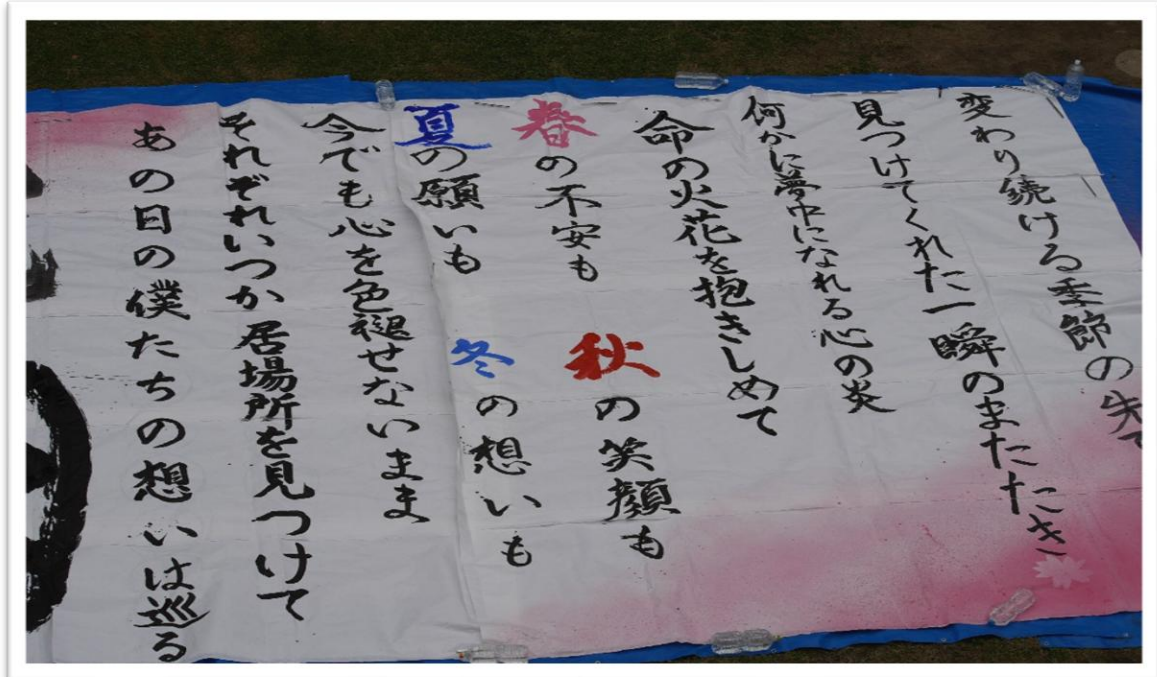 変わり続ける季節の先で
見つけてくれた一瞬のまたたき
何かに夢中になれる心の炎
命の火花を抱きしめて
春の不安も 秋の笑顔も
夏の願いも 冬の想いも
今でも心を色褪せないまま
それぞれいつか居場所を見つけて
あの日の僕たちの想いは巡る